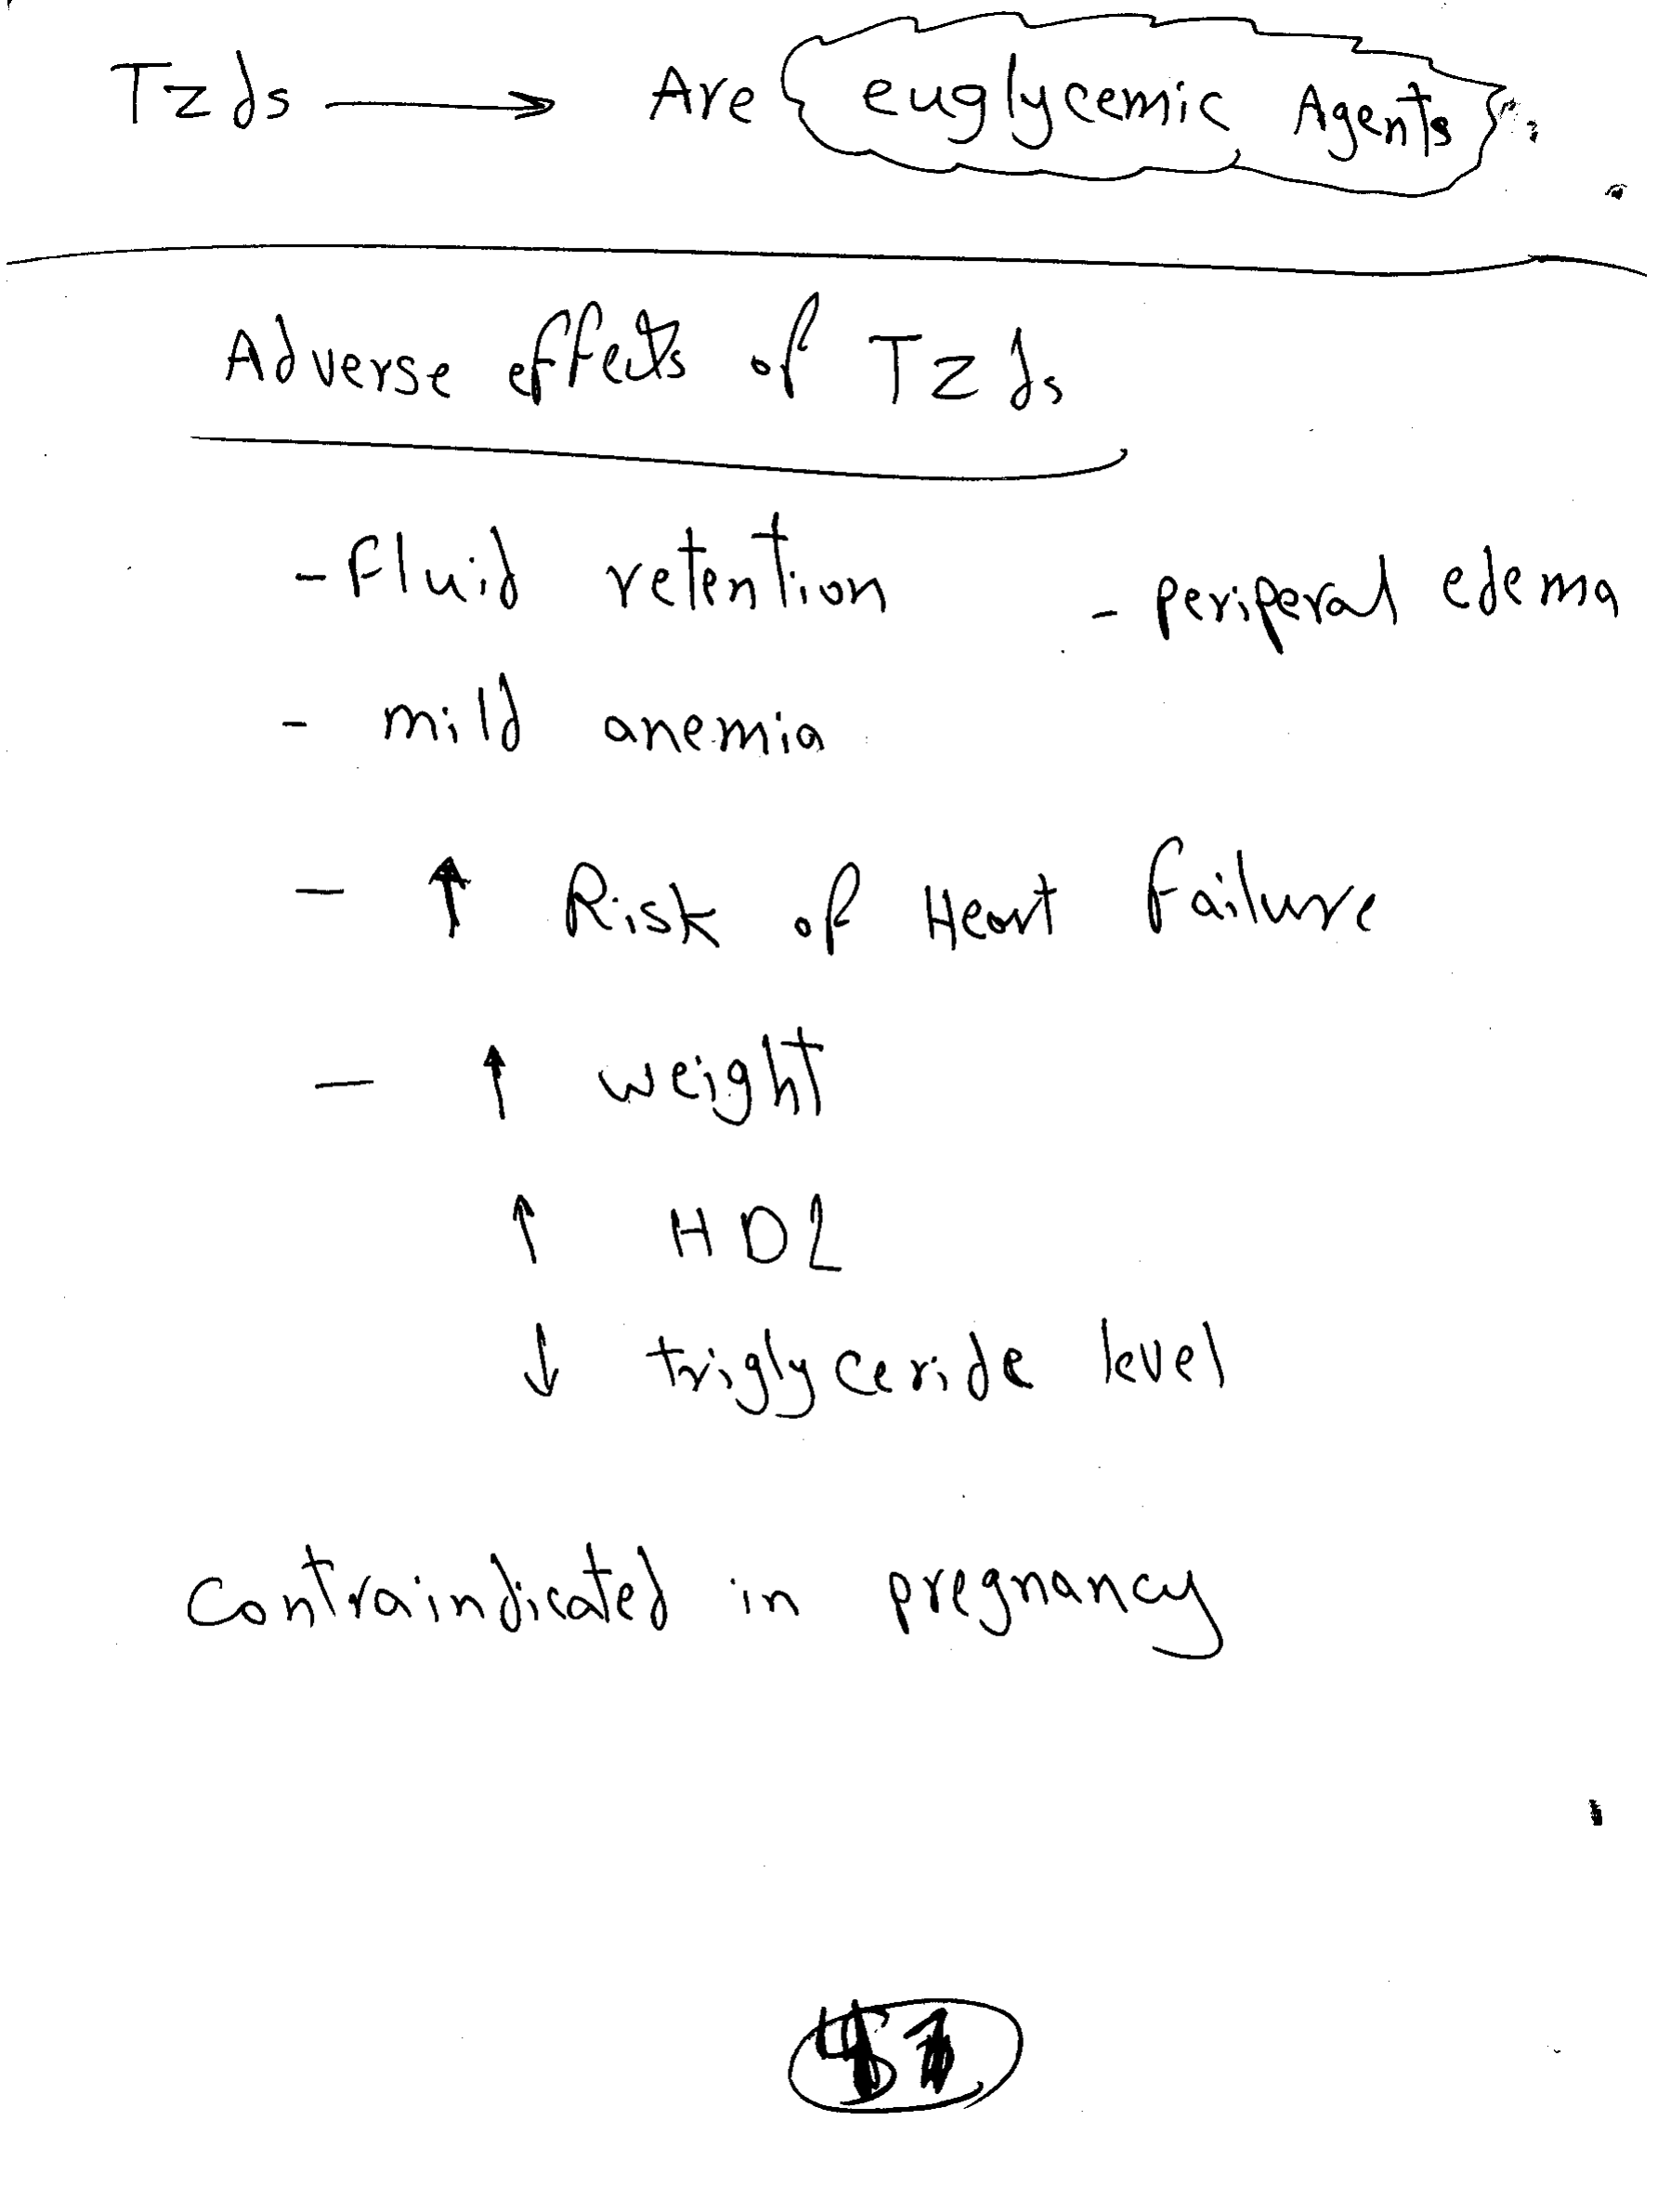 Tzds → Are euglycemic Agents
Adverse effects of Tzds
- fluid retention - periperal edema
- mild anemia
- ↑ Risk of Heart failure
- ↑ weight
↑ HDL
↓ triglyceride level
contraindicated in pregnancy